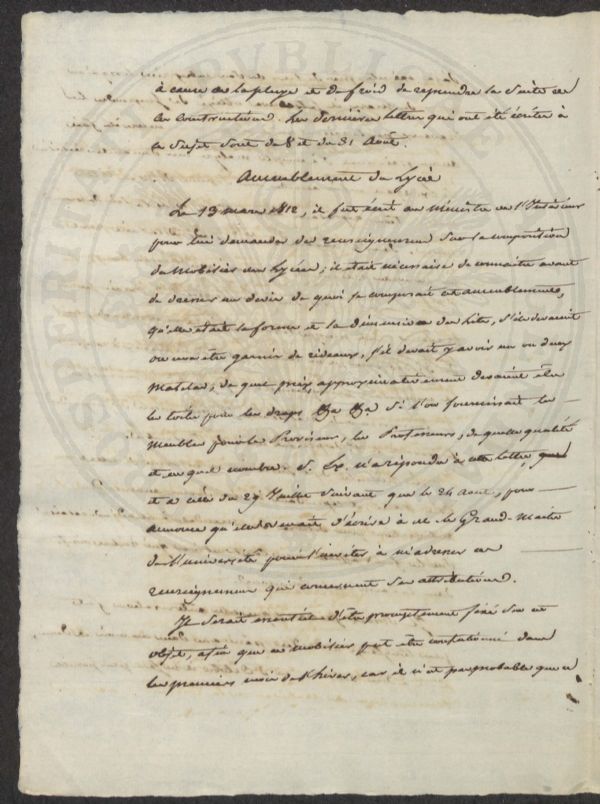 à cause de la pluye et du froid de reprendre la suite de
ces constructions. Les dernières lettres qui ont été écrites à
ce sujet sont du 8 et du 31 Août.
Ameublement du Lycée
Le 13 mars 1812, il fut écrit au Ministre de l'Intérieur
pour lui demander des renseignemens sur la composition
du Mobilier des Lycées; il était nécessaire de connaître avant
de dresser un devis de quoi se composait cet ameublement,
qu'elle était la forme et la dimension des lits, s'ils devaient
ou non être garnis de rideaux, s'il devait y avoir un ou deux
Matelas, de quel prix approximativement devaient être
la toile pour les draps &a &a Si l'on fournissait les
Meubles pour le Proviseur, les Professeurs, de quelle qualité
et en quel nombre. S. Ex. n'a répondu à cette lettre, que
et à celle du 29 Juillet suivant que le 24 Août, pour
annoncer qu'elle venait d'écrire à M. le Grand-Maître
de l'université pour l'inviter, à m'adresser ces
renseignemens qui concernent ses attributions.
Il serait essentiel d'être promptement fixé sur cet
objet, afin que ce mobilier put être confectionné dans
les premiers mois de l'hiver, car il n'est pas probable que